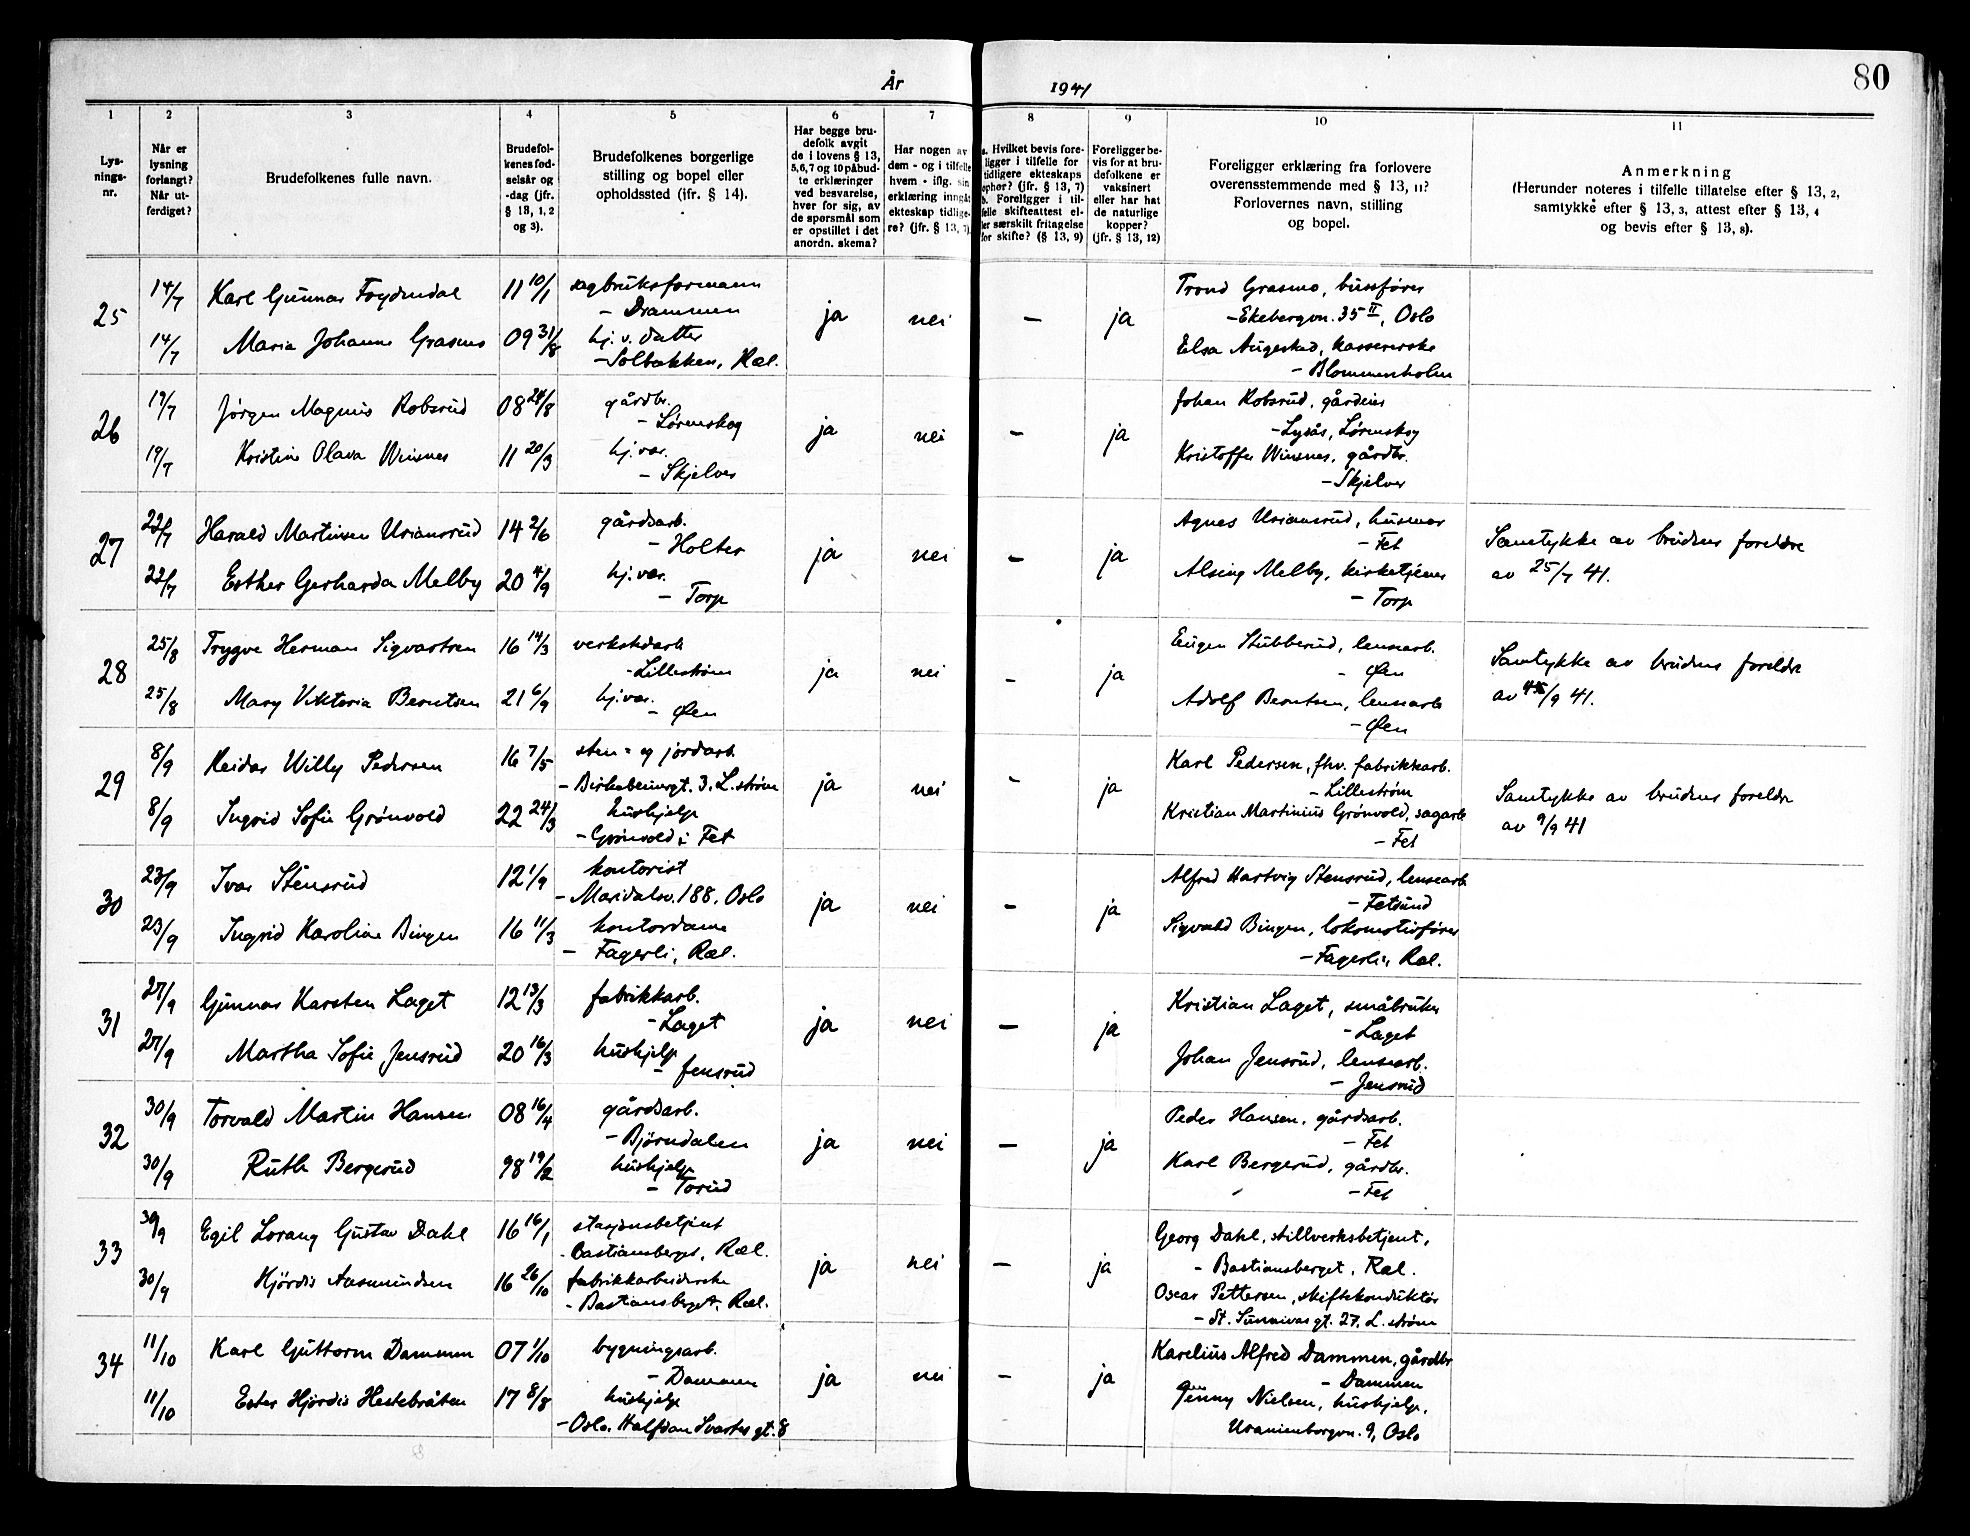 År 1941
80
1 2 3 4 5 6 7 8 9 10 11
Lys-
nings-
nr.
Når er
lysning
forlangt?
Når ut-
ferdiget?
Brudefolkenes fulle navn.
Brudefol-
kenes fød-
selsår og
-dag (jfr.
§ 13, 1, 2
og 3).
Brudefolkenes borgerlige
stilling og bopel eller
opholdssted (jfr. § 14).
Har begge bru-
defolk avgit
de i lovens § 13,
5, 6, 7 og 10 påbud-
te erklæringer
ved besvarelse,
hver for sig, av
de spørsmål som
er opstillet i det
anordn. skema?
Har nogen av
dem - og i tilfelle
hvem - iflg. sin
erklæring inngåt
ekteskap tidlige-
re? (jfr. § 13, 7)
a. Hvilket bevis fore-
ligger i tilfelle for
tidligere ekteskaps
ophør? (jfr. § 13, 7)
b. Foreligger i til-
felle skifteattest el-
ler særskilt fritagelse
for skifte? (§ 13, 9)
Foreligger be-
vis for at bru-
defolkene er
vaksinert
eller har hat
de naturlige
kopper?
(jfr. § 13, 12)
Foreligger erklæring fra forlovere
overensstemmende med § 13, 11?
Forlovernes navn, stilling
og bopel.
Anmerkning
(Herunder noteres i tilfelle tillatelse efter § 13, 2,
samtykke efter § 13, 3, attest efter § 13, 4
og bevis efter § 13, 8).
25
14/7 Karl Gunnar 11 10/1 sagbruksformann
- Drammen
14/7 Maria Johanne Grasmo 09 31/8 hj. v. datter
- Solbakken, Ræl.
ja nei — ja
Trond Grasmo, bussfører
- Ekebergvn. 35 II, Oslo
Elsa Augestad, kassererske
- Blommenholm
26
19/7 Jørgen Magnus Robsrud 08 24/8 gårdbr.
- Lørenskog
19/7 Kristine Olava Winsnes 11 20/3 hj. vær.
- Skjelver
ja nei — ja
Johan Robsrud, gårdeier
- Lysås, Lørenskog
Kristoffer Winsnes, gårdbr.
- Skjelver
27
22/7 Harald Martinsen Uriansrud 14 2/6 gårdsarb.
- Holter
22/7 Esther Gerharda Melby 20 4/9 hj. vær.
- Torp
ja nei — ja
Agnes Uriansrud, husmor
- Fet
Alsing Melby, kirketjener
- Torp
Samtykke av brudens foreldre
av 25/7 41.
28
25/8 Trygve Herman Sigvartsen 16 14/3 verkstedarb.
- Lillestrøm
25/8 Mary Viktoria Berntsen 21 6/9 hj. vær.
- Øen
ja nei — ja
Eugen Stubberud, lensearb.
- Øen
Adolf Berntsen, lensearb.
- Øen
Samtykke av brudens foreldre
av /9 41.
29
8/9 Reidar Willy Pedersen 16 7/5 sten- og jordarb.
- Birkebeinergt. 3, L.strøm
8/9 Ingrid Sofie Grønvold 22 24/3 hushjelp
- Grønvold i Fet
ja nei — ja
Karl Pedersen, fhv. fabrikkarb.
- Lillestrøm
Kristian Martinius Grønvold, sagarb.
- Fet
Samtykke av brudens foreldre
av 9/9 41
30
23/9 Ivar Stensrud 12 1/9 kontorist
- Maridalsv. 188, Oslo
23/9 Ingrid Karoline Bingen 16 11/3 kontordame
- Fagerli, Ræl.
ja nei — ja
Alfred Hartvig Stensrud, lensearb.
- Fetsund
Sigvald Bingen, lokomotivfører
- Fagerli, Ræl.
31
27/9 Gunnar Karsten Laget 12 13/3 fabrikkarb.
- Laget
27/9 Martha Sofie Jensrud 20 16/3 hushjelp
- Jensrud
ja nei — ja
Kristian Laget, småbruker
- Laget
Johan Jensrud, lensearb.
- Jensrud
32
30/9 Torvald Martin Hansen 08 16/4 gårdsarb.
- Bjørndalen
30/9 Ruth Bergerud 98 19/2 hushjelp
- Torud
ja nei — ja
Peder Hansen, gårdsarb.
- Fet
Karl Bergerud, gårdbr.
- Fet
33
30/9 Egil Lorang Gustav Dahl 16 16/1 stasjonsbetjent
- Bastiansberget, Ræl.
30/9 Hjørdis Aasmundsen 16 26/10 fabrikkarbeiderske
- Bastiansberget, Ræl.
ja nei — ja
Georg Dahl, stillverksbetjent,
- Bastiansberget, Ræl.
Oscar Pettersen, skiftekonduktør
- St. Sunnivas gt. 27, L.strøm
34
11/10 Karl Guttorm Dammen 07 1/10 bygningsarb.
- Dammen
11/10 Ester Hjørdis Hestebråten 17 8/8 hushjelp
- Oslo, Halfdan Svartes gt. 8
ja nei — ja
Karelius Alfred Dammen, gårdbr.
- Dammen
Jenny Nielsen, hushjelp,
Uranienborgvn. 9, Oslo